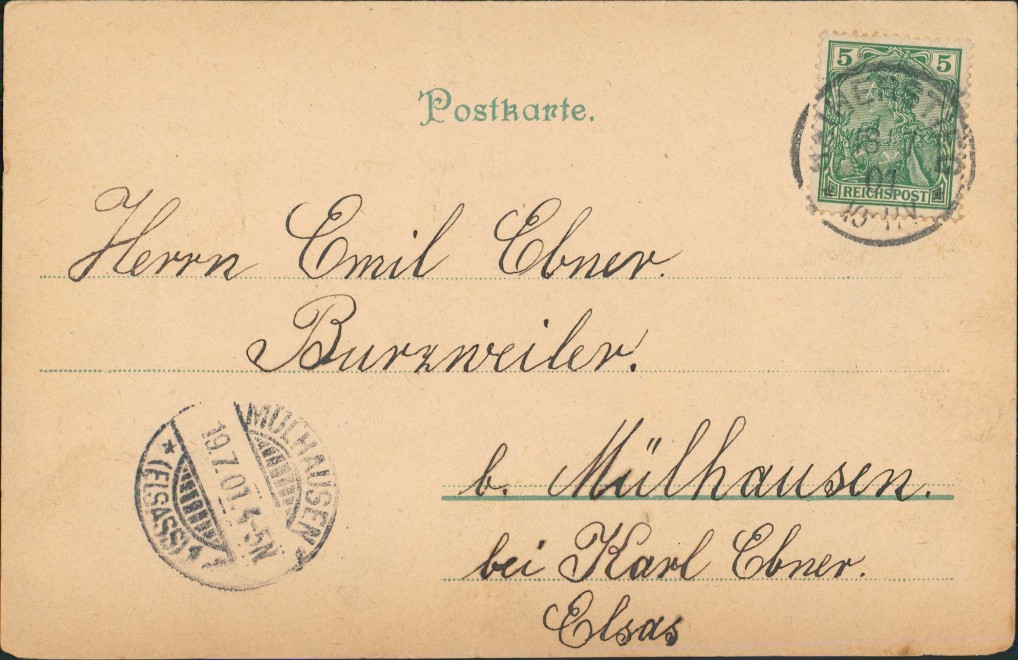 5 5
REICHSPOST
01
Postkarte.
Herrn Emil Ebner.
Burzweiler.
b. Mülhausen.
bei Karl Ebner.
Elsas
MÜLHAUSEN
19.7.01. 4-5N
* (ELSASS) *